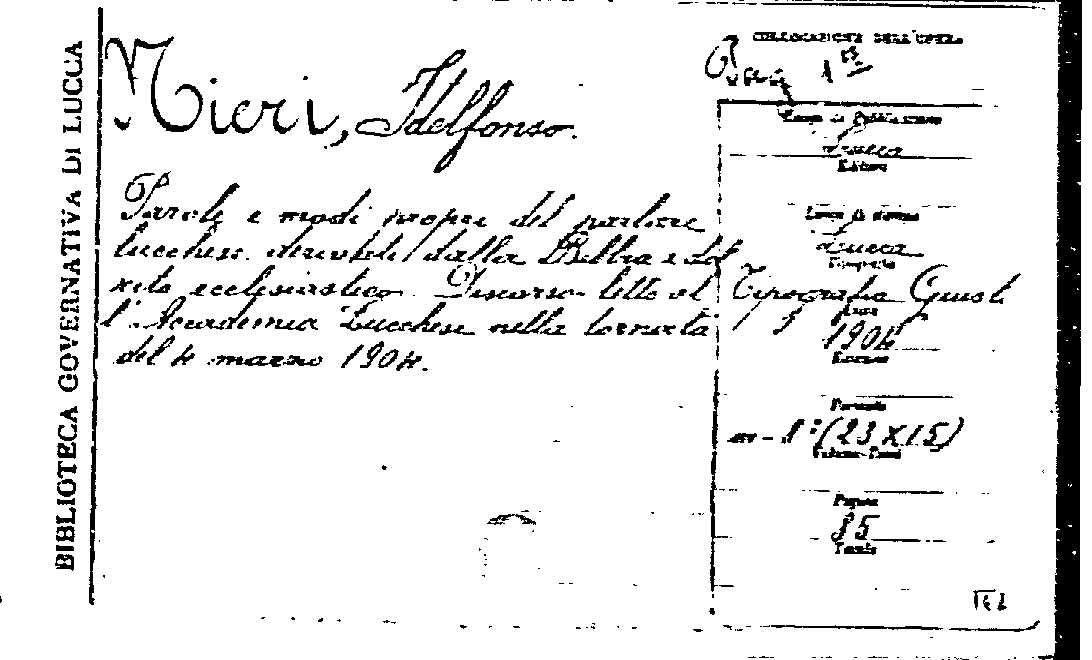 BIBLIOTECA GOVERNATIVA DI LUCCA
Nieri, Idelfonso.
Parole e modi propri del parlare
lucchese derivati dalla Bibbia e dal
rito ecclesiastico. Discorso letto al
l'Accademia Lucchese nella tornata
del 4 marzo 1904.
COLLOCAZIONE DELL'OPERA
Luogo di Pubblicazione
Lucca
Editore
Luogo di stampa
Lucca
Tipografia
Tipografia Giusti
Anno
1904
Edizione
Formato
8° (23X15)
Pagine
35
Tavole